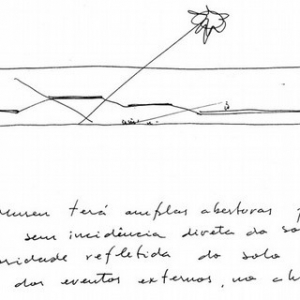 museu terá amplas aberturas
sem incidência direta do so
ridade refletida do solo
dos eventos externos, no